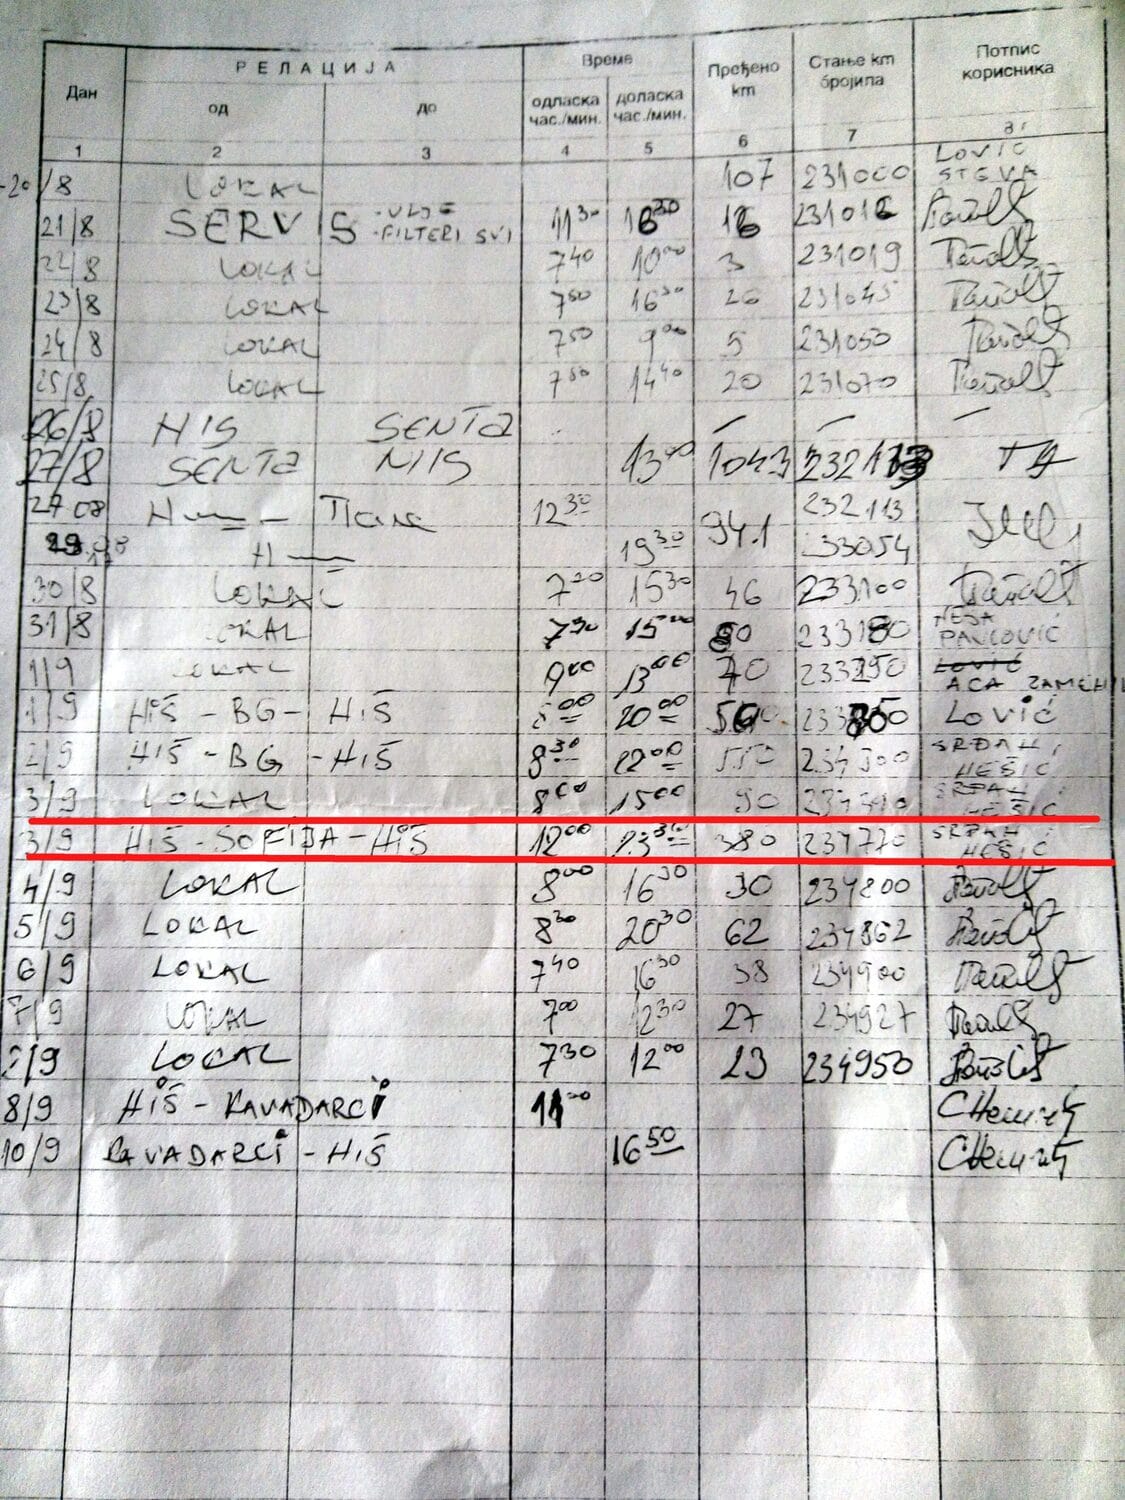 Дан РЕЛАЦИЈА Време Пређено km Стање km бројила Потпис корисника
од до одласка час./мин. доласка час./мин.
1 2 3 4 5 6 7 8
-20/8 LOKAL 107 231000 LOVIĆ STEVA
21/8 SERVIS -ULJE -FILTERI SVI 11 30 16 30 16 231016
22/8 LOKAL 7 40 10 00 3 231019
23/8 LOKAL 7 50 16 30 26 231045
24/8 LOKAL 7 50 9 00 5 231050
25/8 LOKAL 7 50 14 40 20 231070
26/8 NIS SENTA - - -
27/8 SENTA NIIS 13 00 1043 232113
27 08 12 30 232113
941
19 30 233054
30/8 LOKAL 7 20 15 30 46 233100
31/8 LOKAL 7 30 15 00 80 233180 NEŠA PAVLOVIĆ
1/9 LOKAL 9 00 13 00 70 233250 LOVIĆ ACA
1/9 NIŠ - BG - NIŠ 20 00 LOVIĆ
2/9 NIŠ - BG - NIŠ 8 30 22 00 550 234300 SRĐAN NEŠIĆ
3/9 LOKAL 8 00 15 00 90 SRĐAN NEŠIĆ
3/9 NIŠ - SOFIJA - NIŠ 12 00 23 30 380 234770 SRĐAN NEŠIĆ
4/9 LOKAL 8 00 16 30 30 234800
5/9 LOKAL 8 30 20 30 62 234862
6/9 LOKAL 7 40 16 30 38 234900
7/9 LOKAL 7 00 12 30 27 234927
7/9 LOKAL 7 30 12 00 23 234950
8/9 NIŠ - KAVADARCI
10/9 KAVADARCI - NIŠ 16 50